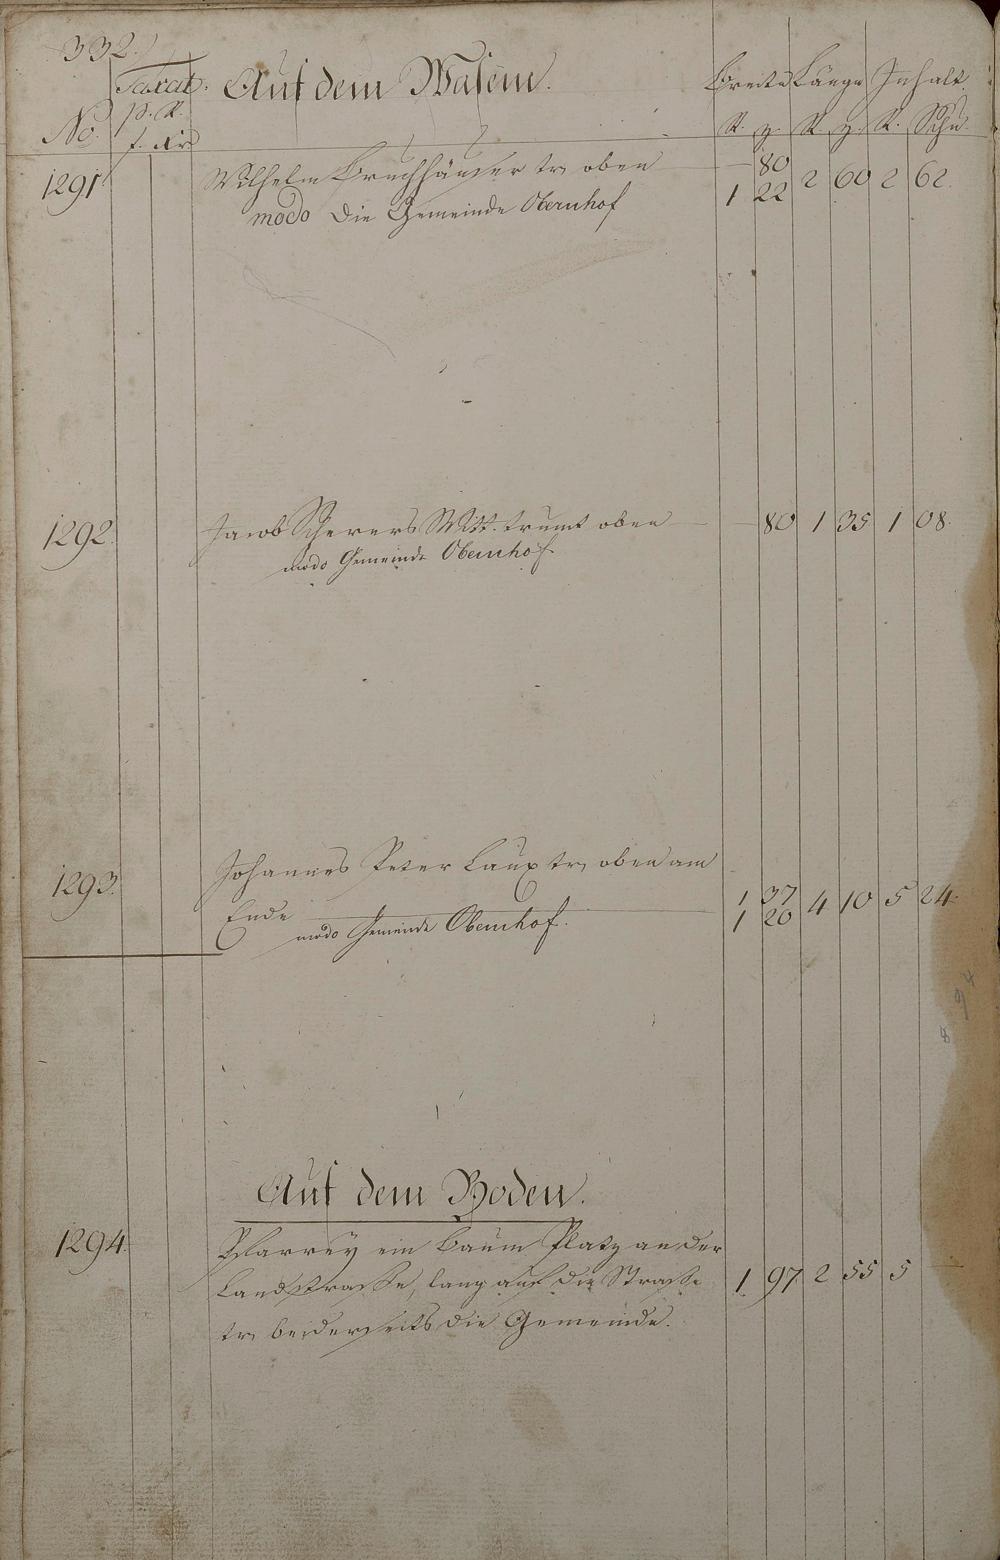 332.
Taxat. Auf dem Wasem. Breite Länge Inhalt
No. p. R. R. z. R. z. R. Schu
f. xr
1291 Wilhelm Bruchhäuser tr. oben — 80 2 60 2 62.
modo die Gemeinde Obernhof 1 22
1292. Jacob Scherers Witt. trumt oben — 80 1 35 1 08.
modo Gemeinde Obernhof
1293. Johannes Peter Laux tr. oben am 1 37 4 10 5 24.
Ende — modo Gemeinde Obernhof. 1 20
Auf dem Boden.
1294. Pfarrey ein Baum Platz an der
Landstrasse, lang auf die Strasse 1. 97 2 55 5 —
tr. beiderseits die Gemeinde.